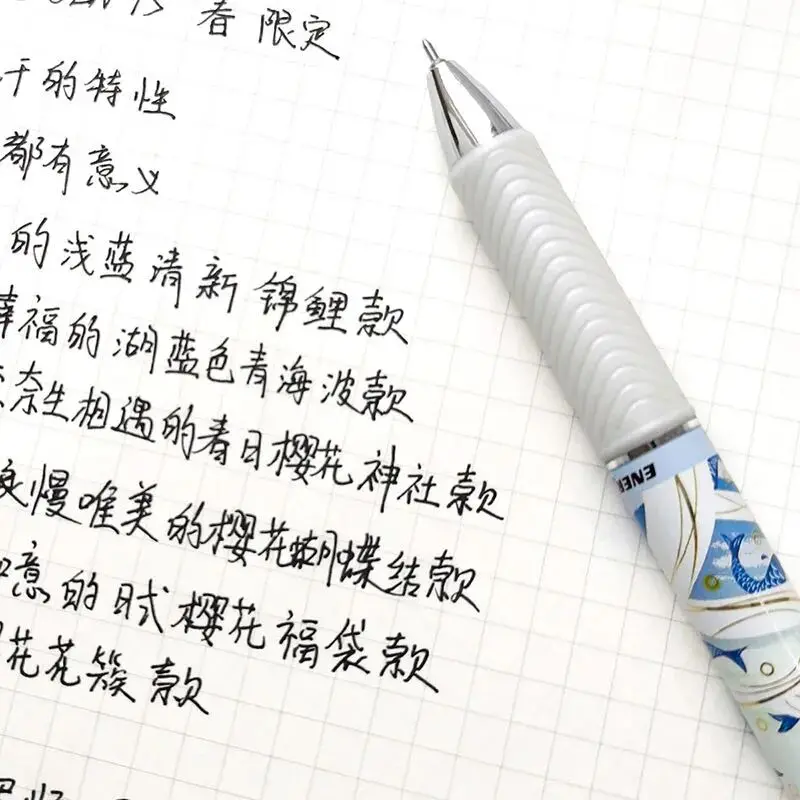 春限定
干的特性
都有意义
的浅蓝清新锦鲤款
幸福的湖蓝色青海波款
奈生相遇的春日樱花神社款
浪慢唯美的樱花蝴蝶结款
意的日式樱花福袋款
花花簇款
ENER